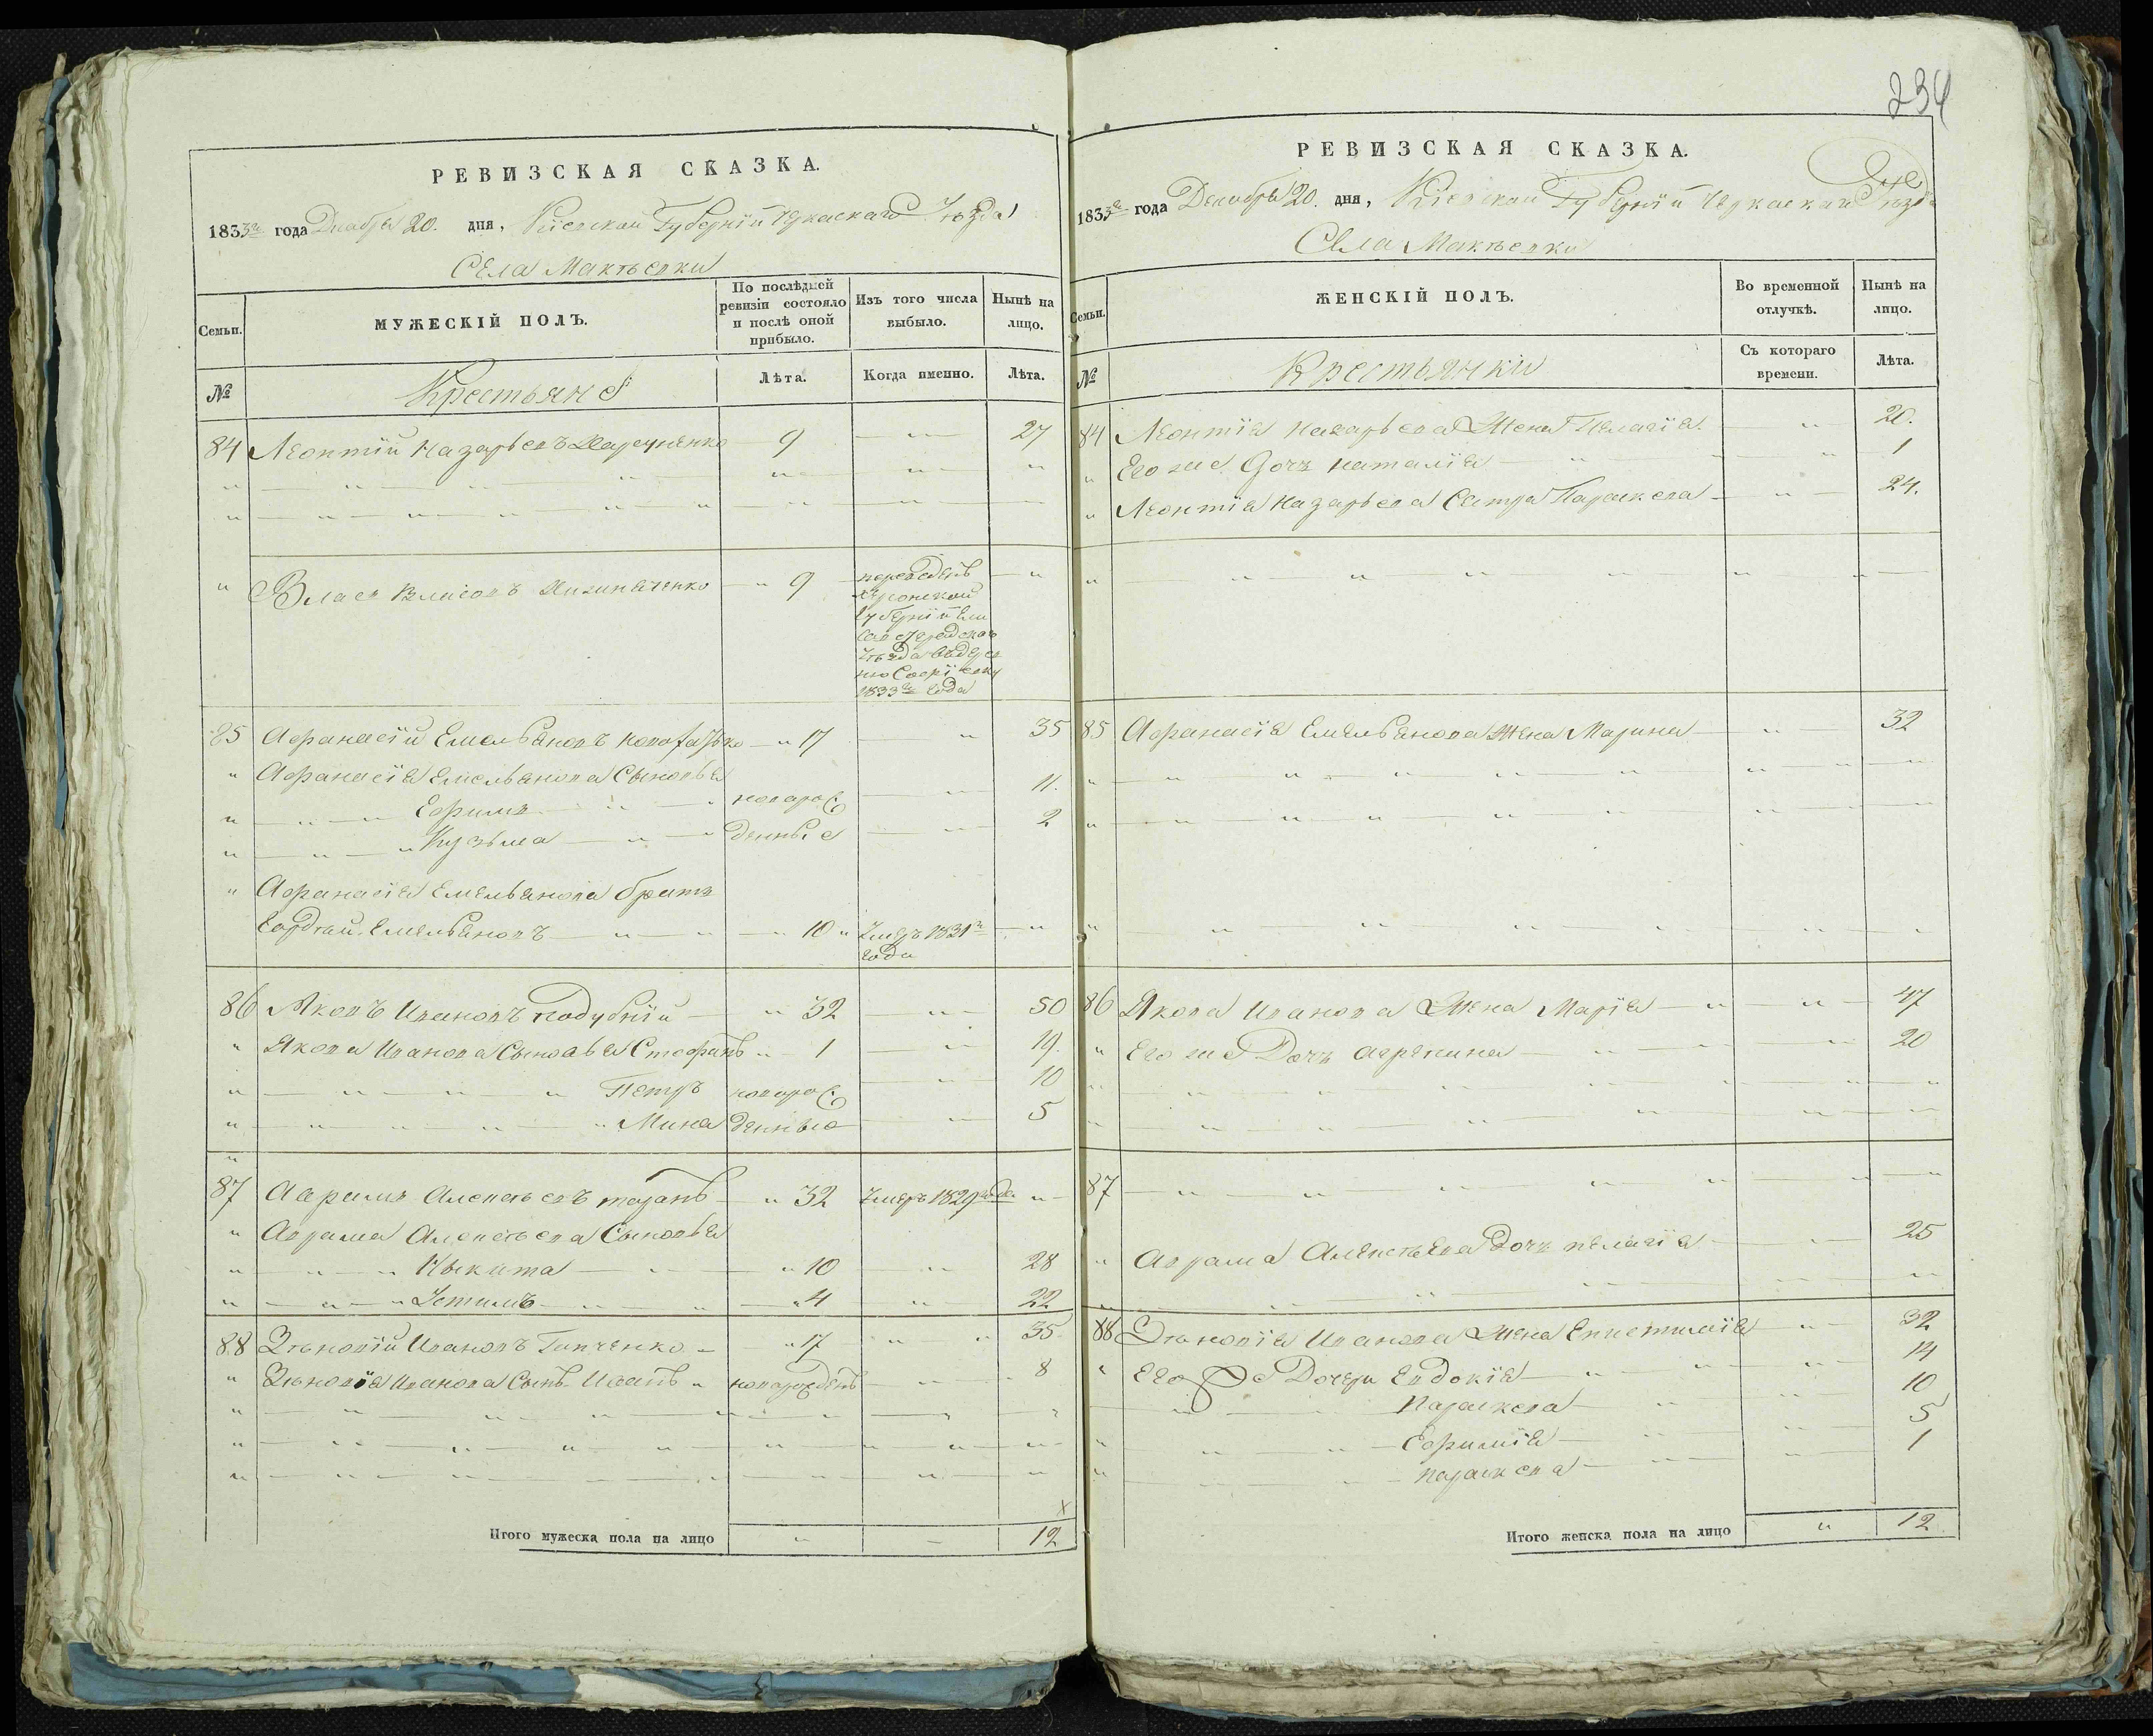 234
РЕВИЗСКАЯ СКАЗКА.
1833го года Декабря 20. дня, Кіевской Губерніи Черкаскаго Уѣзда
Села Макѣевки
Семьи.
МУЖЕСКІЙ ПОЛЪ.
По послѣдней ревизіи состояло и послѣ оной прибыло.
Изъ того числа выбыло.
Нынѣ на лицо.
№
Крестьяне
Лѣта.
Когда именно.
Лѣта.
84 Леонтій Назарьевъ 9 27
Власъ Власовъ 9 переведенъ
Херсонской
Губерніи Ели
саветградскаго
Уѣзда въ дерев
ню
1833го года
85 Афанасій Емельяновъ 17 35
Афанасія Емельянова Сыновья
Ефимъ новорож 11.
Кузьма денные 2
Афанасія Емельянова братъ
Гордѣй Емельяновъ 10 Умеръ 1831го
года
86 Яковъ Ивановъ Подубній 32 50
Якова Иванова Сыновья Стефанъ 1 19.
Петръ новорож 10
Мина денные 5
87 Аврамъ Алексѣевъ 32 Умеръ 1829 года
Аврама Алексѣева Сыновья
Никита 10 28
Устимъ 4 22
88 Зѣновій Ивановъ Гипченко 17 35
Зѣновія Иванова Сынъ Иванъ новорожденъ 8
Итого мужеска пола на лицо 12
РЕВИЗСКАЯ СКАЗКА.
1833го года Декабря 20. дня, Кіевской Губерніи Черкаскаго Уѣзда
Села Макѣевки
Семьи.
ЖЕНСКІЙ ПОЛЪ.
Во временной отлучкѣ.
Нынѣ на лицо.
№
Крестьянки
Съ котораго времени.
Лѣта.
84 Леонтія Назарьева Жена Пелагія 20.
Его же Дочь Наталія 1
Леонтія Назарьева Сестра Параскева 24.
85 Афанасія Емельянова Жена Марина 32
86 Якова Иванова Жена Марія 47
Его же Дочь Агрепина 20
87
Аврама Алексѣева Дочь Пелагія 25
88 Зѣновія Иванова Жена 32
Его же Дочери Евдокія 14
Параскева 10
Ефимія 5
Параскева 1
Итого женска пола на лицо 12